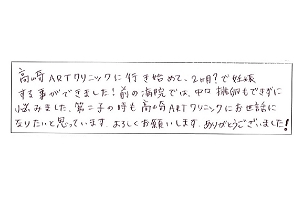 高崎ARTクリニックに行き始めて、2ヶ月?で妊娠
する事ができました!前の病院では、中々排卵もできずに
悩みました。第二子の時も高崎ARTクリニックにお世話に
なりたいと思っています。よろしくお願いします。ありがとうございました!